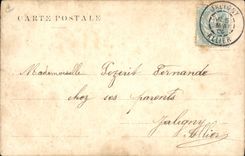 CARTE POSTALE
JALIGNY
ALLIER
Mademoiselle Lozerit Fernande
chez ses parents
Jaligny
Allier